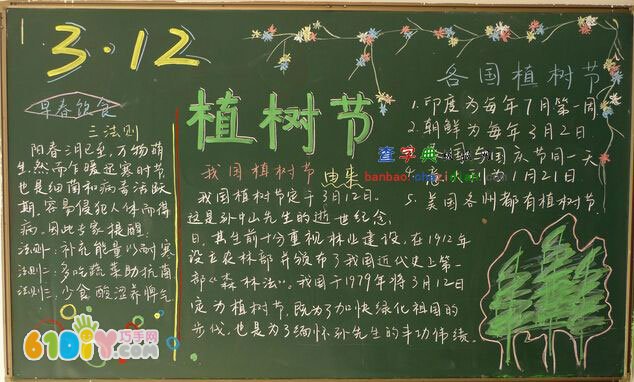 3·12
早春饮食
三法则
阳春三月已至,万物萌
生,然而乍暖还寒时节
也是细菌和病毒活跃
期,容易侵犯人体而得
病,因此专家提醒:
法则一:补充能量以耐寒
法则二:多吃蔬菜助抗菌
法则三:少食酸湿养脾气
植树节
我国植树节 由来
我国植树节定于3月12日。
这是孙中山先生的逝世纪念
日,其生前十分重视林业建设,在1912年
设立农林部并颁布了我国近代史上第一
部《森林法》。我国于1979年将3月12日
定为植树节,既为了加快绿化祖国的
步伐,也是为了缅怀孙先生的丰功伟绩。
各国植树节
1.印度为每年7月第一周
2.朝鲜为每年3月2日
国与国庆节同一天
1月21日
5.美国各州都有植树节
查字典
banbao.
61DIY巧手网